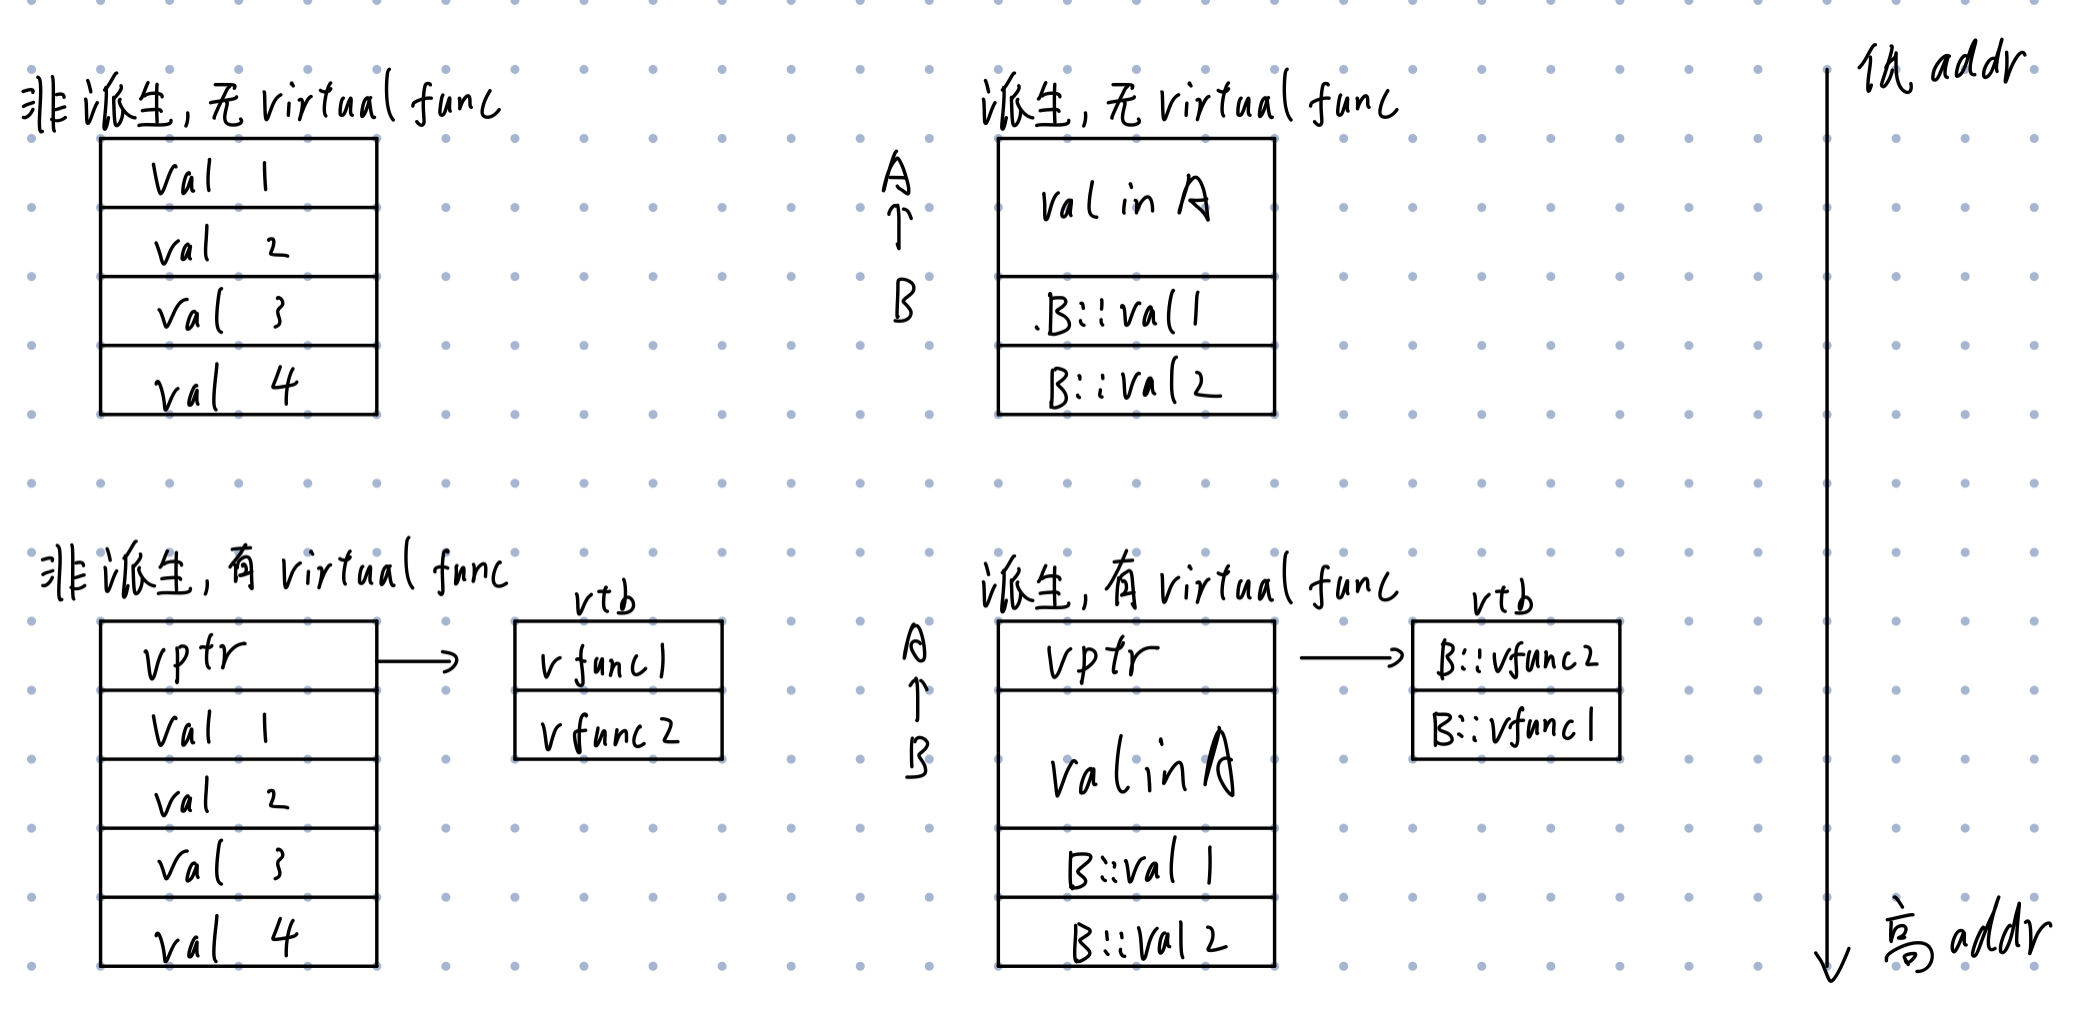 非派生, 无 virtual func
val 1
val 2
val 3
val 4
派生, 无 virtual func
A
B
val in A
B::val1
B::val2
低 addr
非派生, 有 virtual func
vptr
val 1
val 2
val 3
val 4
vtb
vfunc1
vfunc2
派生, 有 virtual func
A
B
vptr
val in A
B::val 1
B::val 2
vtb
B::vfunc2
B::vfunc1
高 addr